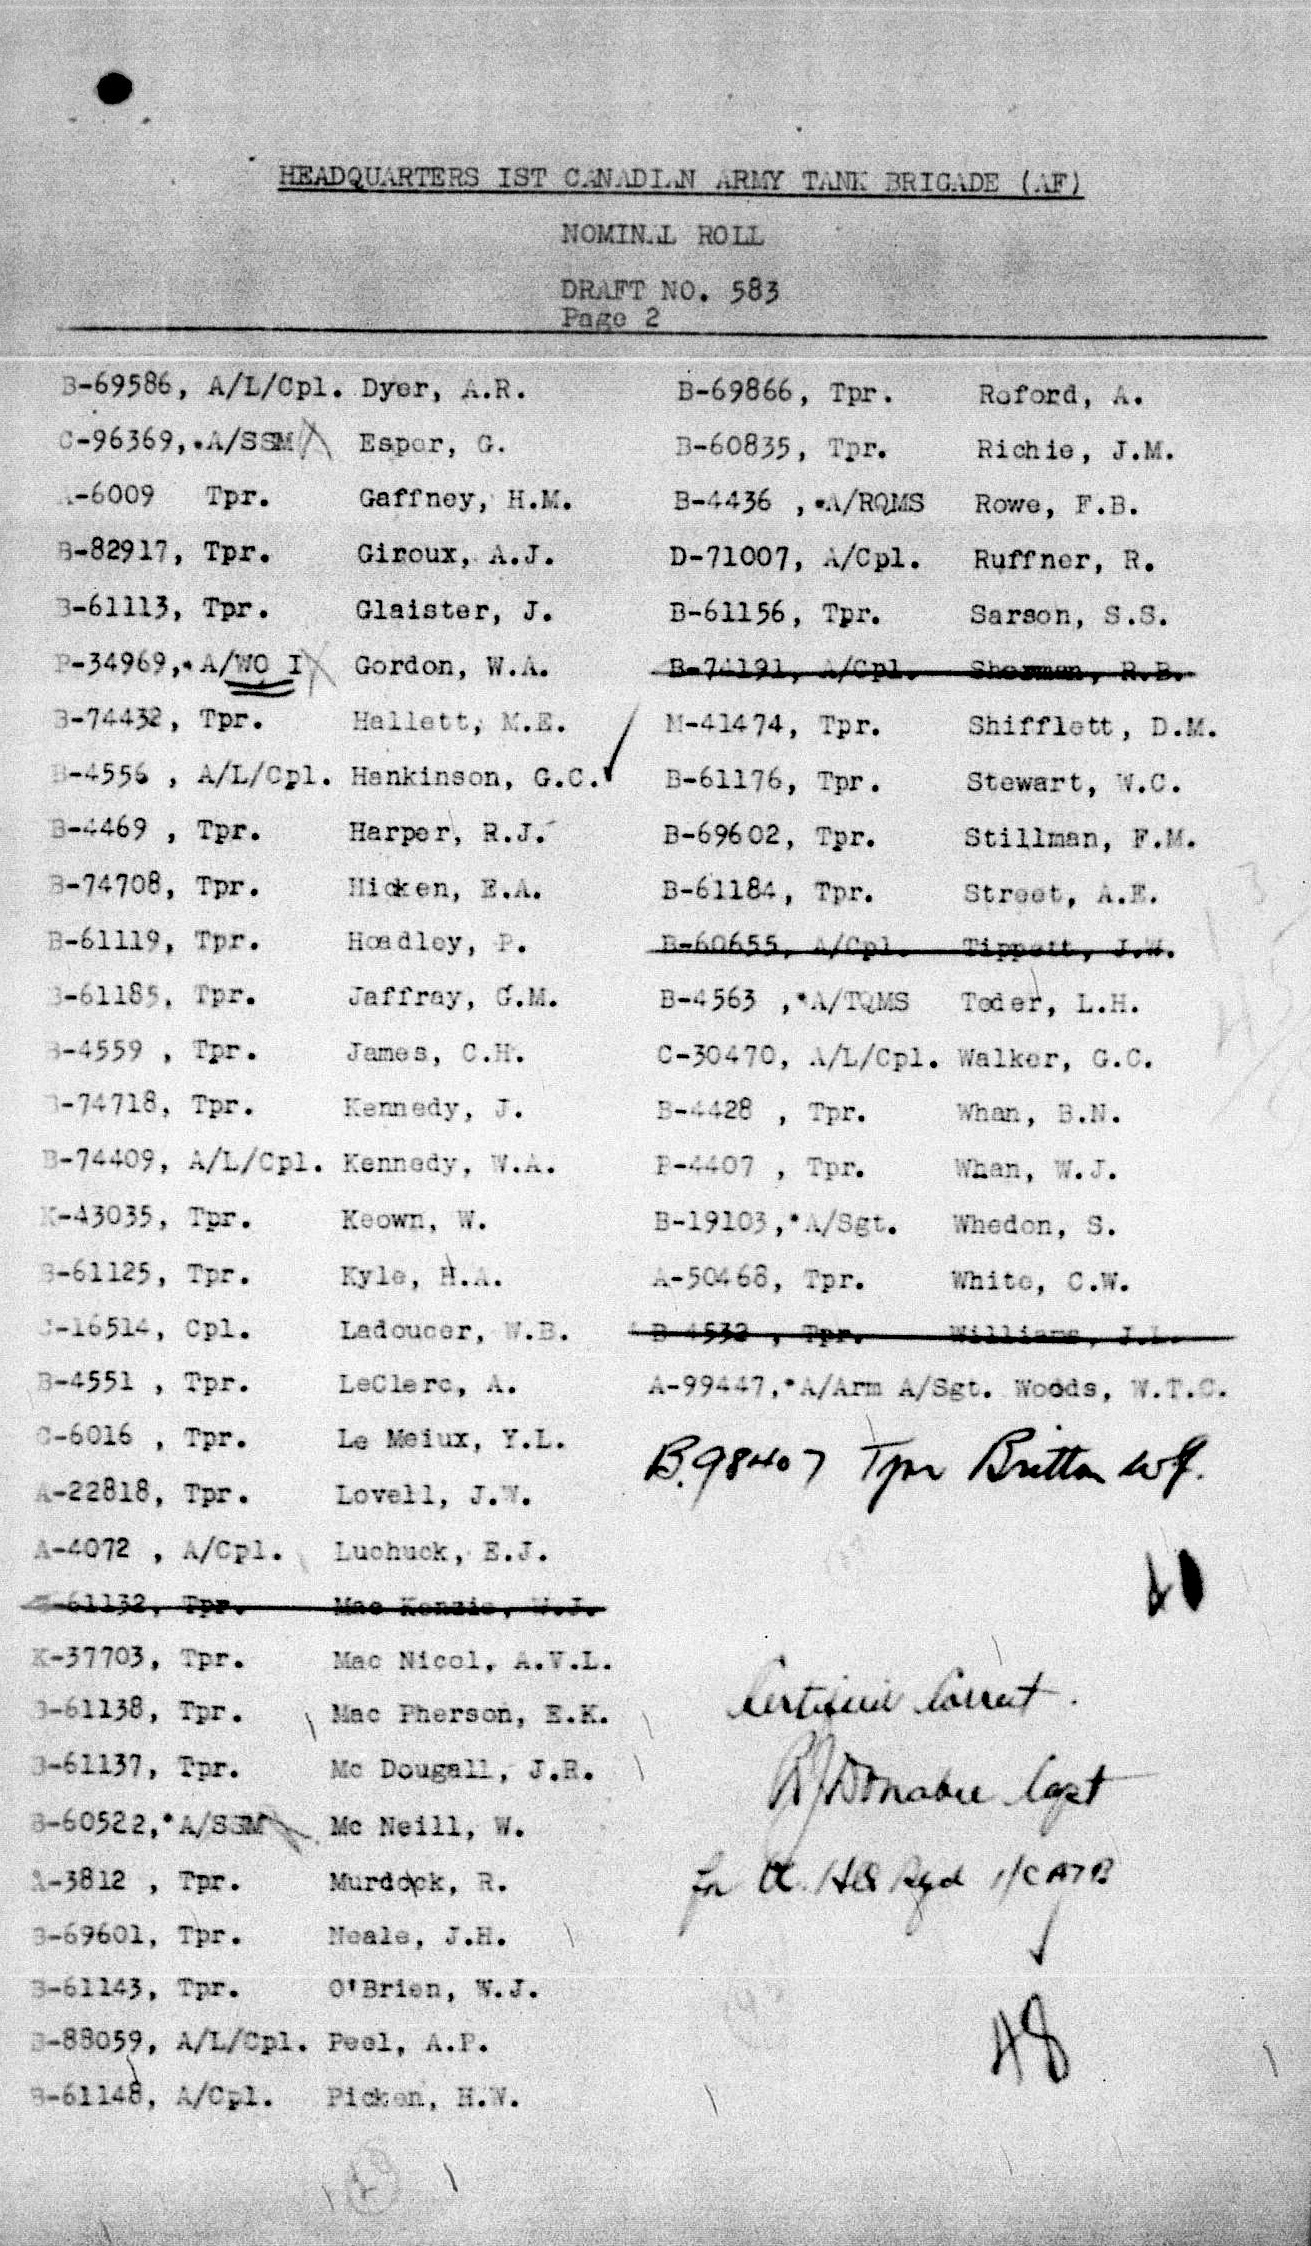 HEADQUARTERS 1ST CANADIAN ARMY TANK BRIGADE (AF)
NOMINAL ROLL
DRAFT NO. 583
Page 2
B-69586, A/L/Cpl. Dyer, A.R.
C-96369, *A/SSM Esper, G.
-6009 Tpr. Gaffney, H.M.
B-82917, Tpr. Giroux, A.J.
B-61113, Tpr. Glaister, J.
P-34969, *A/WO I Gordon, W.A.
B-74432, Tpr. Hallett, M.E.
B-4556 , A/L/Cpl. Hankinson, G.C.
B-4469 , Tpr. Harper, R.J.
B-74708, Tpr. Hicken, E.A.
B-61119, Tpr. Hoadley, P.
B-61185, Tpr. Jaffray, G.M.
B-4559 , Tpr. James, C.H.
B-74718, Tpr. Kennedy, J.
B-74409, A/L/Cpl. Kennedy, W.A.
K-43035, Tpr. Keown, W.
B-61125, Tpr. Kyle, H.A.
C-16514, Cpl. Ladoucer, W.B.
B-4551 , Tpr. LeClerc, A.
C-6016 , Tpr. Le Meiux, Y.L.
A-22818, Tpr. Lovell, J.W.
A-4072 , A/Cpl. Luchuck, E.J.
-61132, Tpr. Mac Kenzie, W.J.
K-37703, Tpr. Mac Nicol, A.V.L.
B-61138, Tpr. Mac Pherson, E.K.
B-61137, Tpr. Mc Dougall, J.R.
B-60522, *A/SSM Mc Neill, W.
A-3812 , Tpr. Murdock, R.
B-69601, Tpr. Neale, J.H.
B-61143, Tpr. O'Brien, W.J.
B-88059, A/L/Cpl. Peel, A.P.
B-61148, A/Cpl. Picken, H.W.
B-69866, Tpr. Roford, A.
B-60835, Tpr. Richie, J.M.
B-4436 , *A/RQMS Rowe, F.B.
D-71007, A/Cpl. Ruffner, R.
B-61156, Tpr. Sarson, S.S.
B-74191, A/Cpl. Sherman, R.B.
M-41474, Tpr. Shifflett, D.M.
B-61176, Tpr. Stewart, W.C.
B-69602, Tpr. Stillman, F.M.
B-61184, Tpr. Street, A.E.
B-60655, A/Cpl. Tippett, J.W.
B-4563 , *A/TQMS Toder, L.H.
C-30470, A/L/Cpl. Walker, G.C.
B-4428 , Tpr. Whan, B.N.
B-4407 , Tpr. Whan, W.J.
B-19103, *A/Sgt. Whedon, S.
A-50468, Tpr. White, C.W.
B-4532 , Tpr. Williams, J.L.
A-99447, *A/Arm A/Sgt. Woods, W.T.C.
B.98407 Tpr Britton WJ.
Certified Correct.
Donahue Capt
for OC. HQ Sqd 1/CATB
48